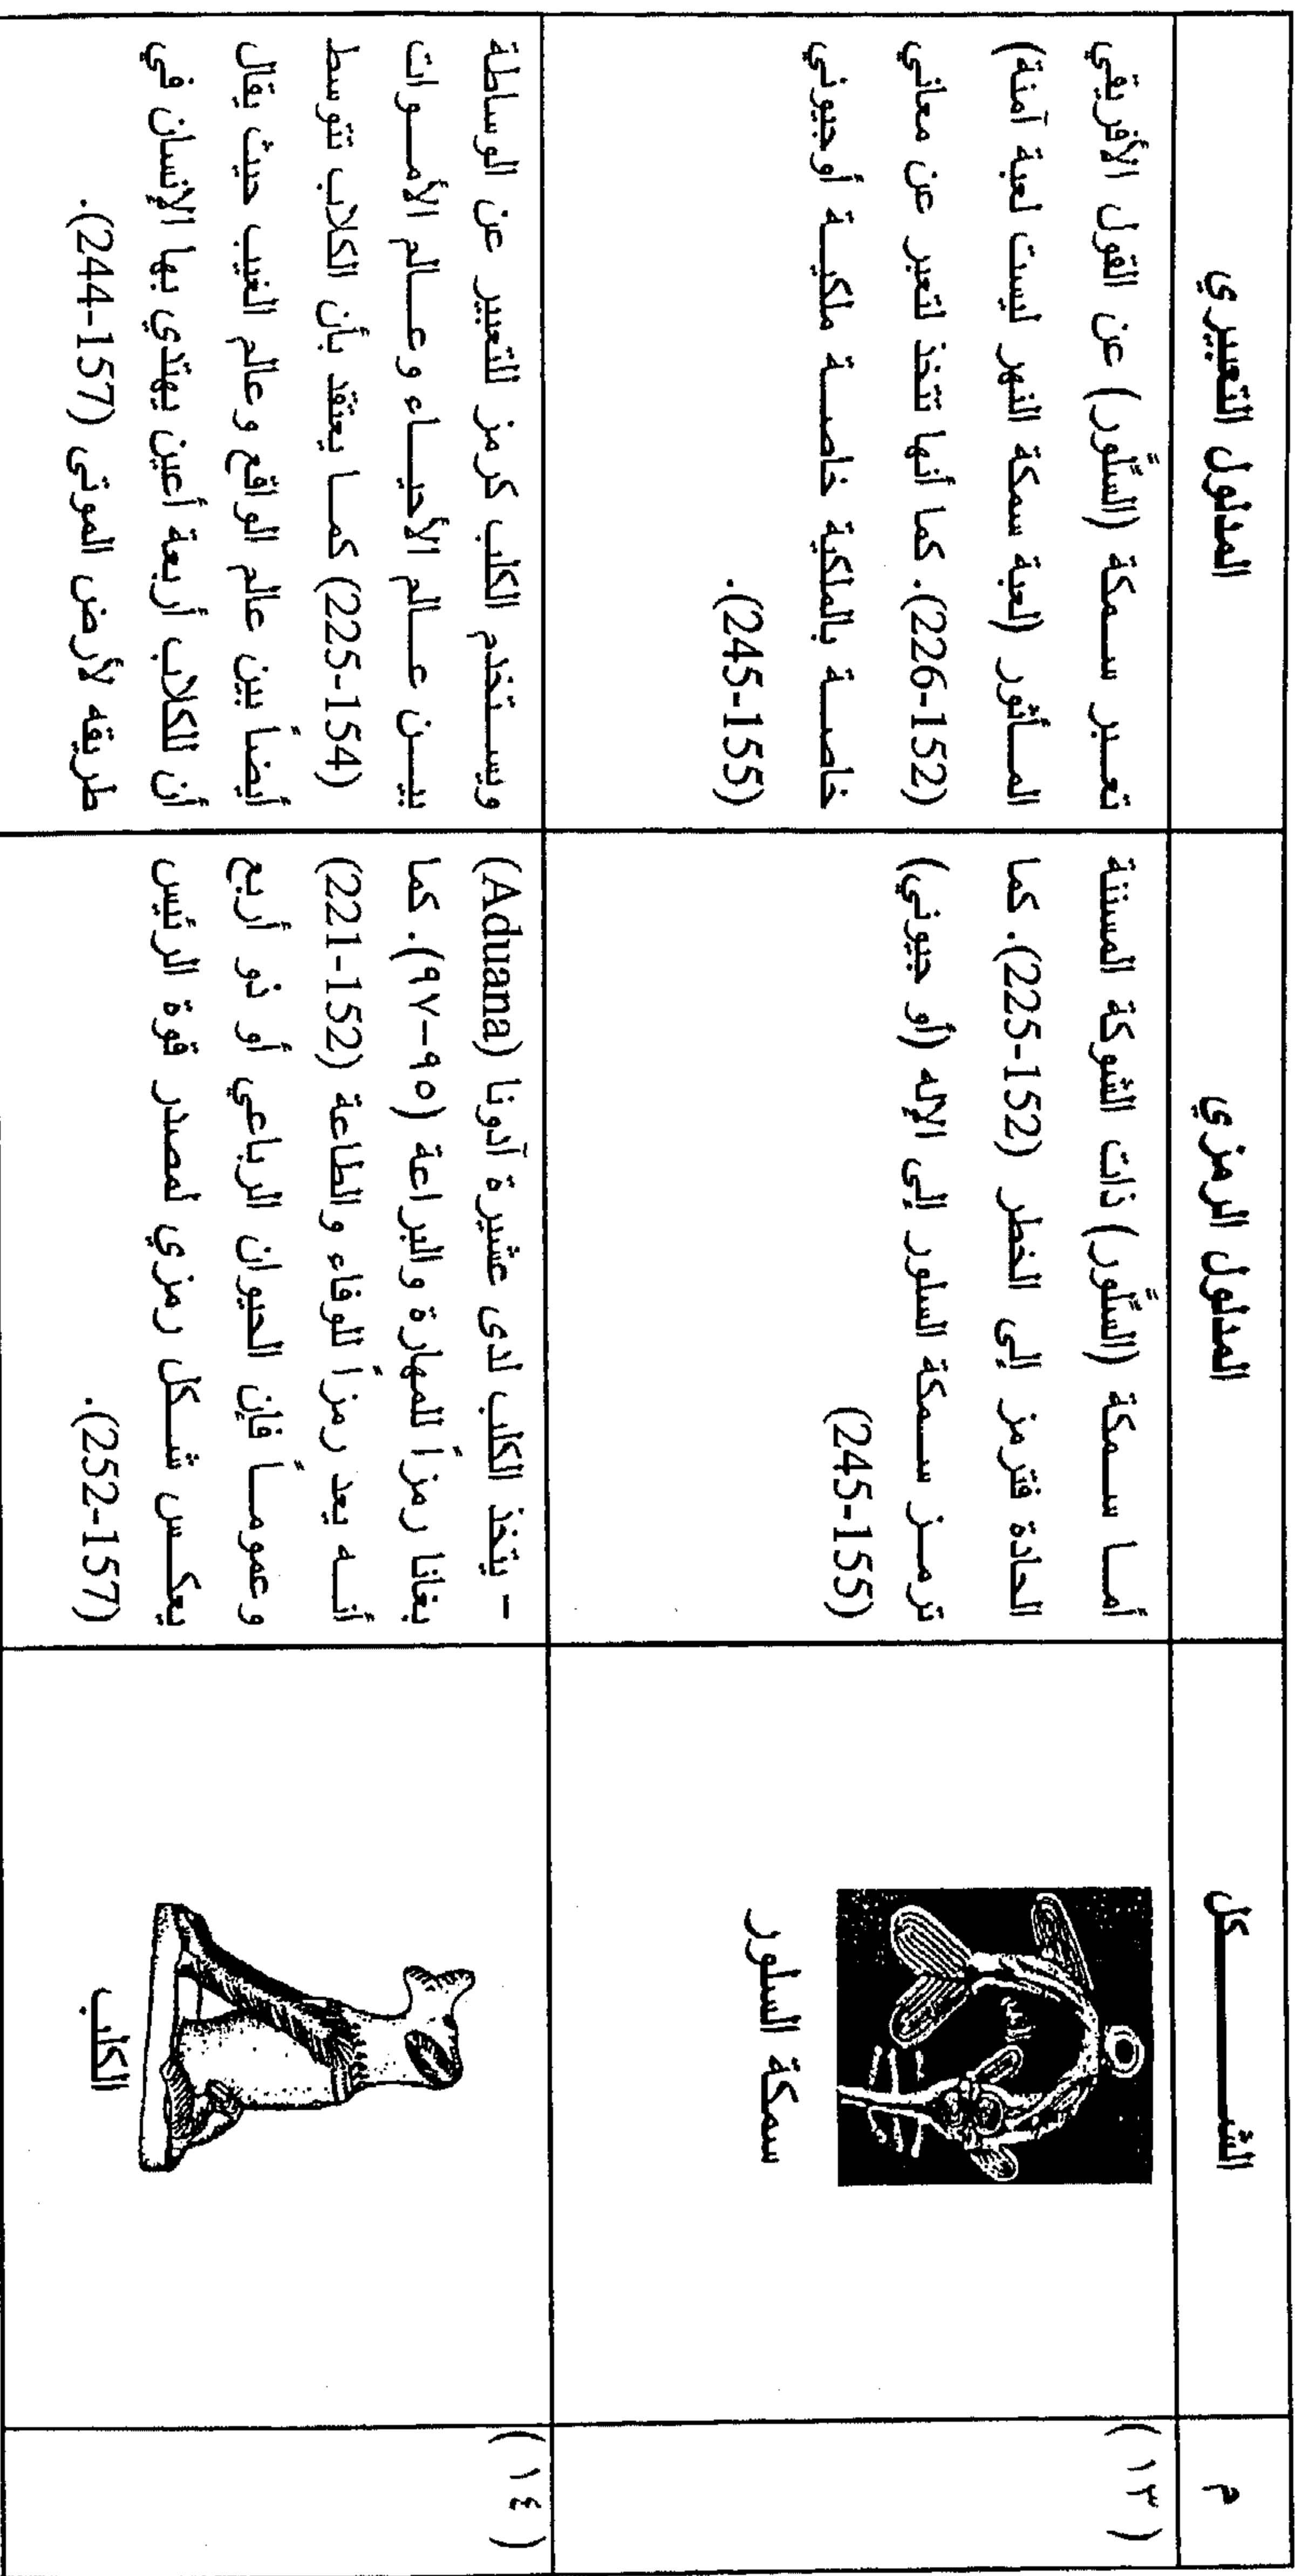 م
الشـــــكل
المدلول الرمزي
المدلول التعبيري
(١٣)
سمكة السلور
أمـــا ســـمكة (السلَّور) ذات الشوكة المسننة
الحادة فترمز إلى الخطر (152-225). كما
ترمـــز ســـمكة السلور إلى الإله (أو جيوني)
(155-245)
تعـــبر ســـمكة (السلَّور) عن القول الأفريقي
المـــأثور (لعبة سمكة النهر ليست لعبة آمنة)
(152-226). كما أنها تتخذ لتعبر عن معاني
خاصـــة بالملكية خاصـــة ملكيـــة أوجيوني
(155-245).
(١٤)
الكلب
- يتخذ الكلب لدى عشيرة آدونا (Aduana)
بغانا رمزاً للمهارة والبراعة (٩٥-٩٧). كما
أنـــه يعد رمزاً للوفاء والطاعة (152-221)
وعمومـــاً فإن الحيوان الرباعي أو ذو أربع
يعكـــس شـــكل رمزي لمصدر قوة الرئيس
(157-252).
ويســـتخدم الكلب كرمز للتعبير عن الوساطة
بيـــن عـــالم الأحيـــاء وعـــالم الأمـــوات
(154-225) كمـــا يعتقد بأن الكلاب تتوسط
أيضاً بين عالم الواقع وعالم الغيب حيث يقال
أن للكلاب أربعة أعين يهتدي بها الإنسان في
طريقه لأرض الموتى (157-244).